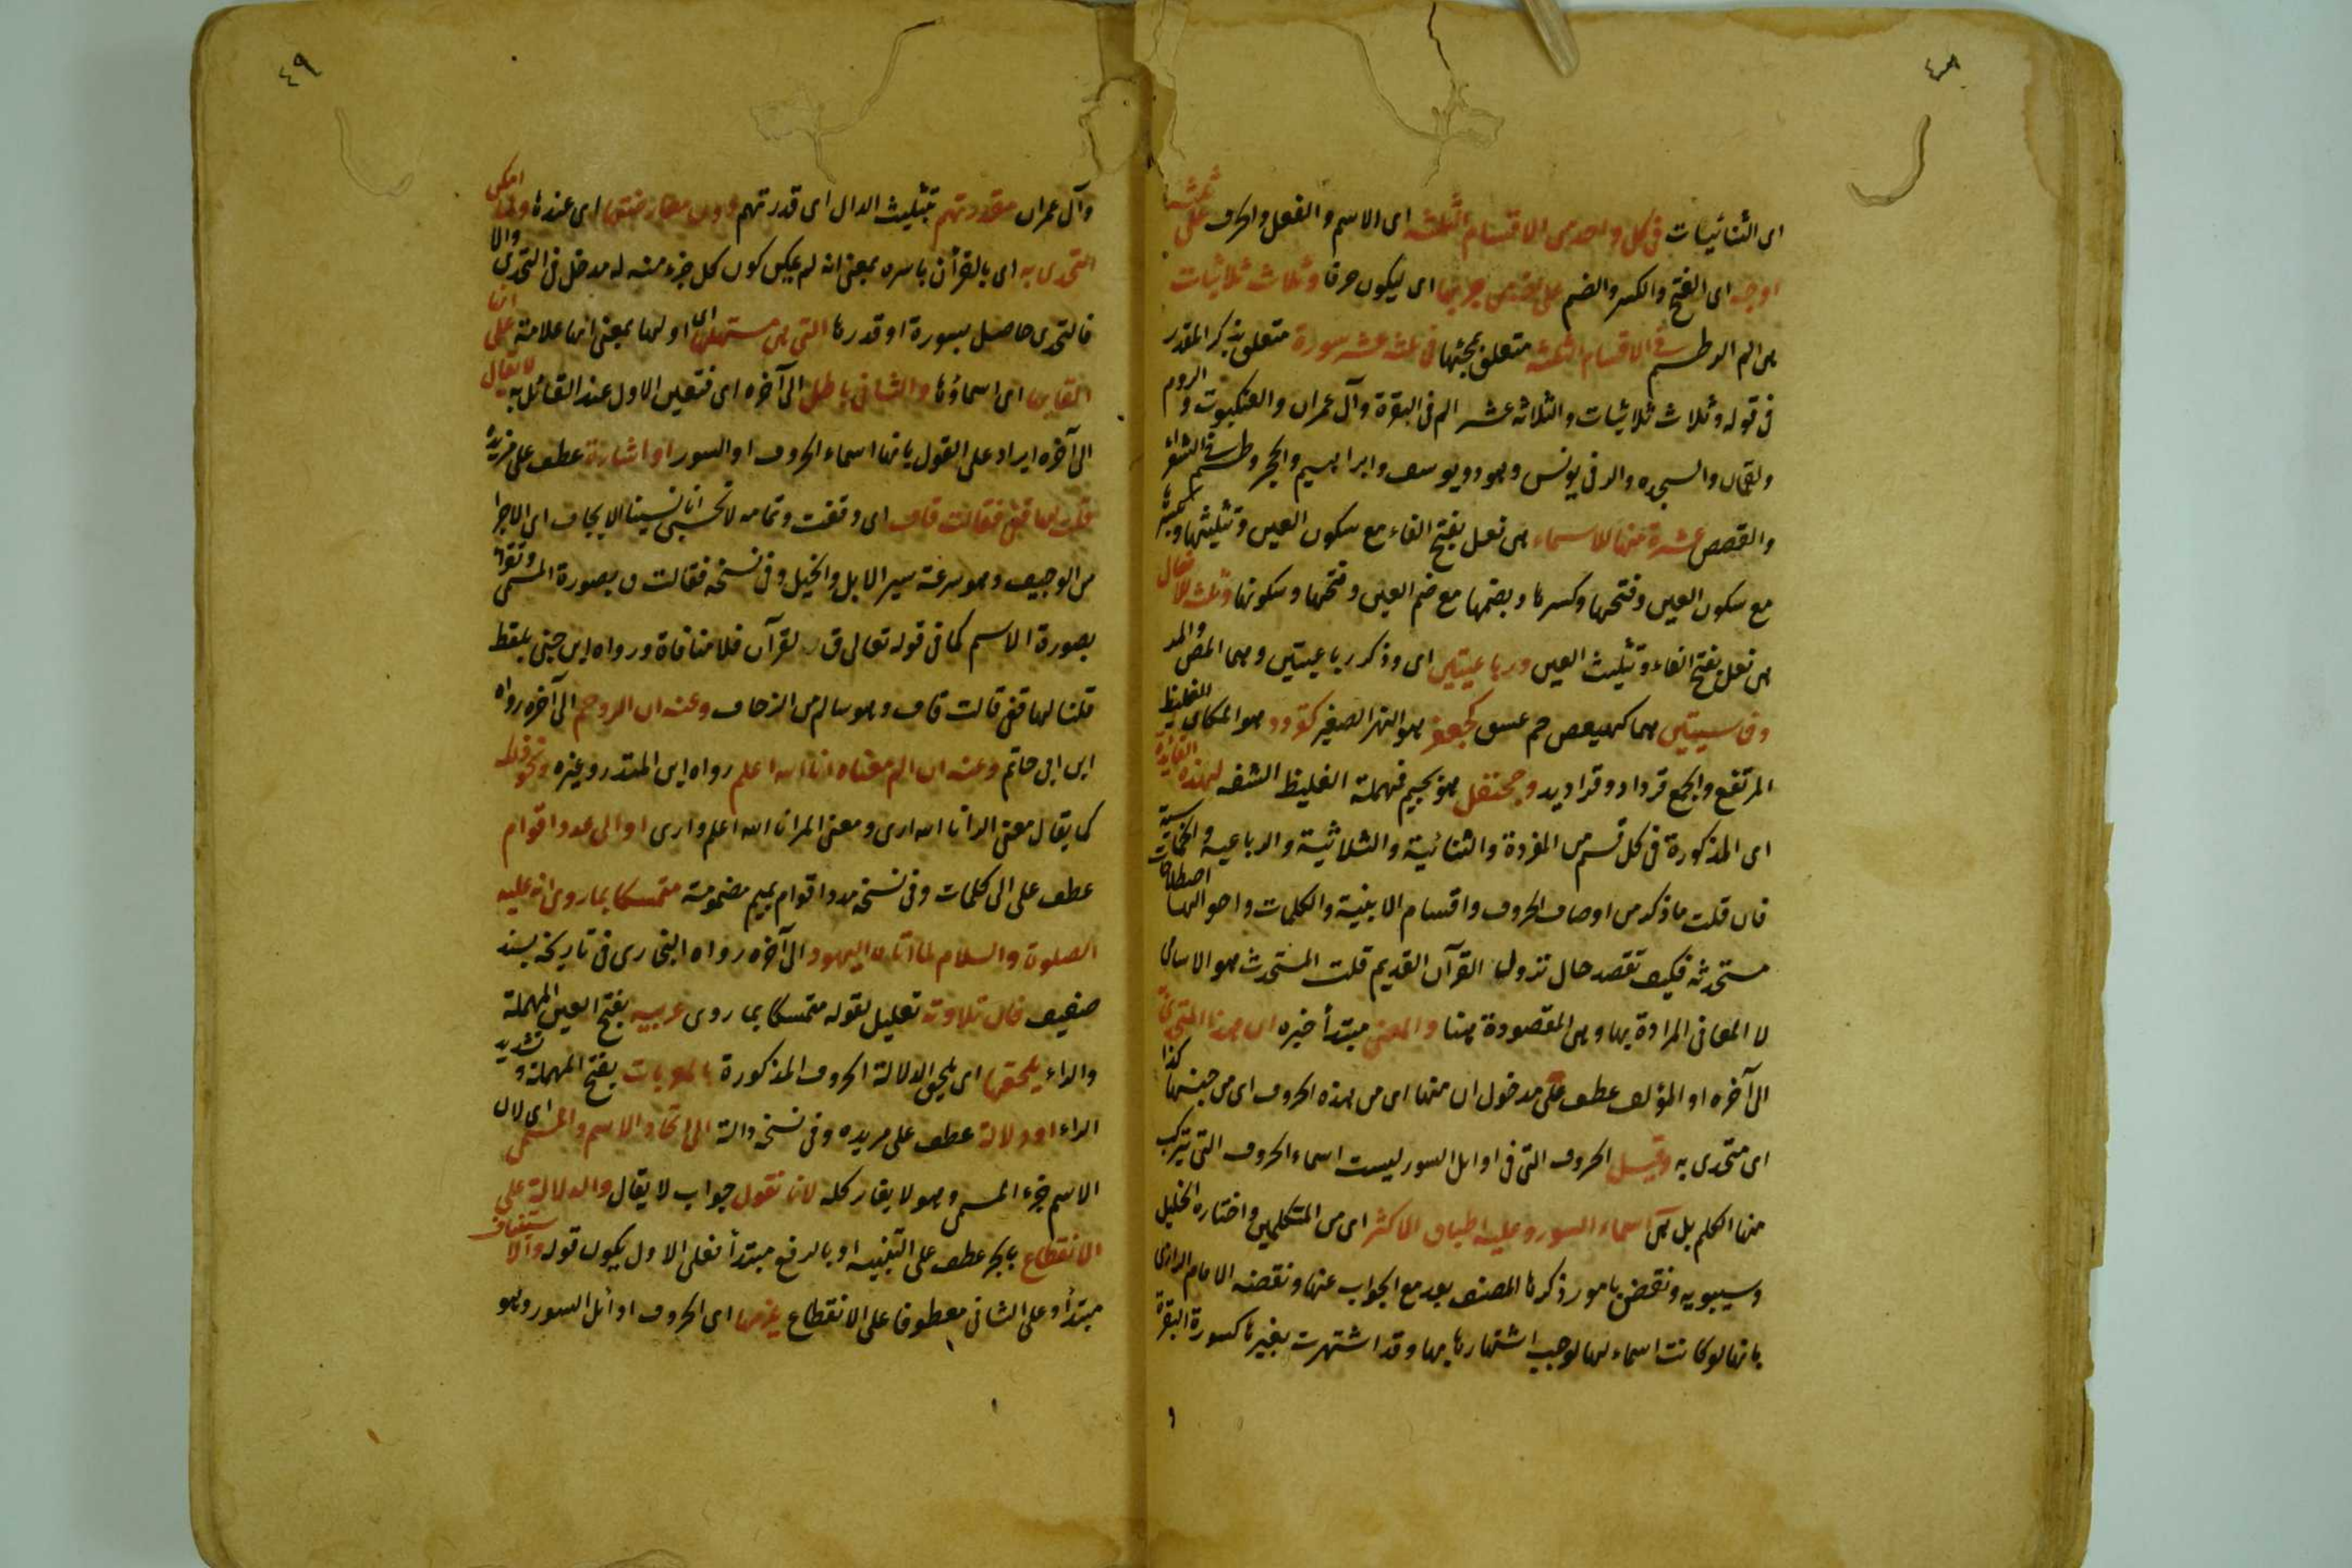 ٤٨
اى الثنائيات فى كل واحد من الاقسام الثلثة اى الاسم والفعل والحرف على ثلثة
اوجه اى الفتح والكسر والضم على ان من جر بها اى ليكون حرفا وثلاث ثلاثيات
هى الم الر طسم فى الاقسام الثلثة متعلق بمجيئها فى ثلثة عشر سورة متعلق بذكر المقدر
فى قوله وثلاث ثلاثيات والثلاثه عشر الم فى البقرة وآل عمران والعنكبوت والروم
ولقمان والسجده والر فى يونس وهود ويوسف وابراهيم والحجر وطسم فى الشعراء
والقصص عشرة منها للاسماء هى فعل بفتح الفاء مع سكون العين وتثليثها وبكسرها
مع سكون العين وفتحها وكسرها وبضمها مع ضم العين وفتحها وسكونها وثلثه للافعال
هى فعل بفتح الفاء وتثليث العين ورباعيتين اى وذكر رباعيتين وهما المص والمر
وخماسيتين هما كهيعص حم عسق كجعفر هو النهر الصغير كقردد هو المكان الغليظ
المرتفع والجمع قرداد وقراديد وجحنفل هو بجيم فمهملة الغليظ الشفه لهذه الفايدة
اى المذكورة فى كل قسم من المفردة والثنائية والثلاثية والرباعيه والخماسية
فان قلت ما ذكر من اوصاف الحروف واقسام الابنية والكلمات واحوالها اصطلاحات
مستحدثه فكيف تقصد حال نزول القرآن القديم قلت المستحدث هو الاسامى
لا المعانى المرادة بها وهى المقصودة هنا والمعنى مبتدأ خبره ان هذا المتحدى به
الى آخره او المؤلف عطف على مدخول ان منها اى من هذه الحروف اى من جنسها كذا
اى متحدى به وقيل الحروف التى فى اوايل السور ليست اسماء الحروف التى يتركب
منها الكلم بل هى اسماء السور وعليه اطباق الاكثر اى من المتكلمين واختاره الخليل
وسيبويه ونقض بامور ذكرها المصنف بعد مع الجواب عنها ونقضه الامام الرازى
بانها لو كانت اسماء لها لوجب اشتهارها بها وقد اشتهرت بغيرها كسورة البقرة
٤٩
وآل عمران مقدرتهم بتثليث الدال اى قدرتهم دون معارضتها اى عندها ولما امكن
التحدى به اى بالقرآن باسره بمعنى انه لم يمكن كون كل جزء منه له مدخل فى التحدى والا
فالتحدى حاصل بسورة او قدرها التى هى مستهلها اى اولها بمعنى انها علامة على انها
القابها اى اسماؤها والثانى باطل الى آخره اى فتعين الاول عند القائل به لا يقال
الى آخره ايراد على القول بانها اسماء الحروف او السور او اشارة عطف على مزيدة
قلت لها قفى فقالت قاف اى وقفت وتمامه لا تحسبى انا نسينا الايجاف اى الاجرا
من الوجيف وهو سرعة سير الابل والخيل وفى نسخه فقالت ق بصورة المسمى وتقرأ
بصورة الاسم كما فى قوله تعالى ق والقرآن فلا منافاة ورواه ابن جنى بلفظ
قلنا لها قفى قالت قاف وهو سالم من الزحاف وعنه ان الر وحم الى آخره رواه
ابن ابى حاتم وعنه ان الم معناه انا الله اعلم رواه ابن المنذر وغيره ونحو ذلك
كما يقال معنى الر انا الله ارى ومعنى المر انا الله اعلم وارى او الى مدد اقوام
عطف على الى كلمات وفى نسخه مدد اقوام بميم مضمومة متمسكا بما روى انه عليه
الصلوة والسلام لما اتاه اليهود الى آخره رواه البخارى فى تاريخه بسند
ضعيف فان تلاوته تعليل لقوله متمسكا بما روى عربيه بفتح العين المهملة
والراء يلحقها اى يلحق الدلالة الحروف المذكورة بالمعربات بفتح المهملة وتشديد
الراء او دلالة عطف على مريده وفى نسخه دالة الى اتحاد الاسم والمسمى اى لان
الاسم جزء المسمى وهو لا يغاير كله لانا نقول جواب لا يقال والدلالة على
الانقطاع بالجر عطف على التنبيه او بالرفع مبتدأ فعلى الاول يكون قوله والاستيناف
مبتدأ وعلى الثانى معطوفا على الانقطاع يلزمها اى الحروف اوائل السور وهو